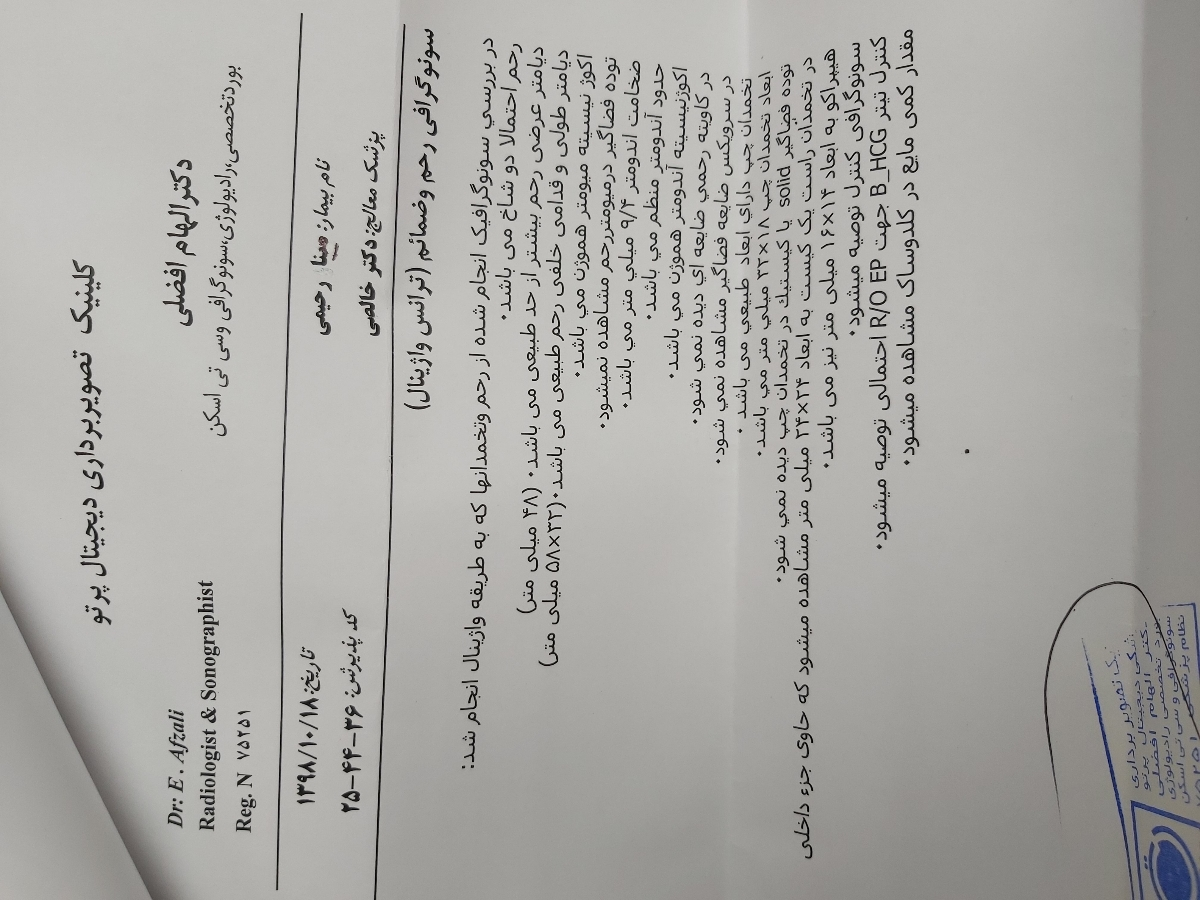 کلینیک تصویربرداری دیجیتال پرتو
دکتر الهام افضلی
بوردتخصصی،رادیولوژی،سونوگرافی وسی تی اسکن
Dr: E . Afzali
Radiologist & Sonographist
Reg. N ۷۵۲۵۱
نام بیمار: مینا رحیمی
تاریخ: ۱۳۹۸/۱۰/۱۸
پزشک معالج: دکتر خالصی
کد پذیرش: ۳۶-۴۴-۲۵
سونوگرافی رحم وضمائم (ترانس واژینال)
در بررسي سونوگرافیک انجام شده از رحم وتخمدانها که به طریقه واژینال انجام شد:
رحم احتمالا دو شاخ می باشد.
دیامتر عرضی رحم بیشتر از حد طبیعی می باشد. (۴۸ میلی متر)
دیامتر طولی و قدامی خلفی رحم طبیعی می باشد.(۳۲×۵۸ میلی متر)
اکوژنیسیته میومتر هموژن می باشد.
توده فضاگیر درمیومتررحم مشاهده نمیشود.
ضخامت اندومتر ۹/۴ میلی متر می باشد.
حدود آندومتر منظم می باشد.
اکوژنیسیته آندومتر هموژن می باشد.
در کاویته رحمی ضایعه ای دیده نمي شود.
در سرویکس ضایعه فضاگیر مشاهده نمي شود.
تخمدان چپ دارای ابعاد طبیعی می باشد.
ابعاد تخمدان چپ ۱۸×۲۲ میلی متر می باشد.
توده فضاگیر solid یا کیستیک در تخمدان چپ دیده نمي شود.
در تخمدان راست یک کیست به ابعاد ۲۴×۲۴ میلی متر مشاهده میشود که حاوی جزء داخلی
هیپراکو به ابعاد ۱۴×۱۶ میلی متر نیز می باشد.
سونوگرافی کنترل توصیه میشود.
کنترل تیتر B_HCG جهت R/O EP احتمالی توصیه میشود.
مقدار کمی مایع در کلدوساک مشاهده میشود.
دکتر الهام افضلی